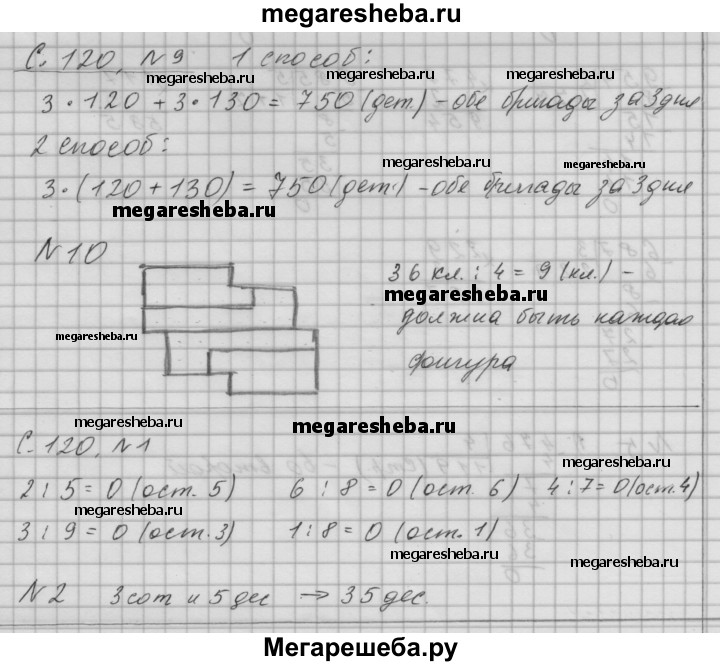 megaresheba.ru
С. 120, №9 1 способ:
megaresheba.ru megaresheba.ru megaresheba.ru
3·120 + 3·130 = 750 (дет.) - обе бригады за 3 дня
2 способ:
megaresheba.ru megaresheba.ru
3·(120 + 130) = 750 (дет.) - обе бригады за 3 дня
megaresheba.ru
№10
36 кл. : 4 = 9 (кл.) -
megaresheba.ru
должна быть каждая
megaresheba.ru
фигура
megaresheba.ru megaresheba.ru
С. 120, №1
megaresheba.ru
2 : 5 = 0 (ост. 5) 6 : 8 = 0 (ост. 6) 4 : 7 = 0 (ост. 4)
megaresheba.ru
3 : 9 = 0 (ост. 3) 1 : 8 = 0 (ост. 1)
megaresheba.ru megaresheba.ru
№2 3 сот и 5 дес → 35 дес.
megaresheba.ru
Мегарешеба.ру